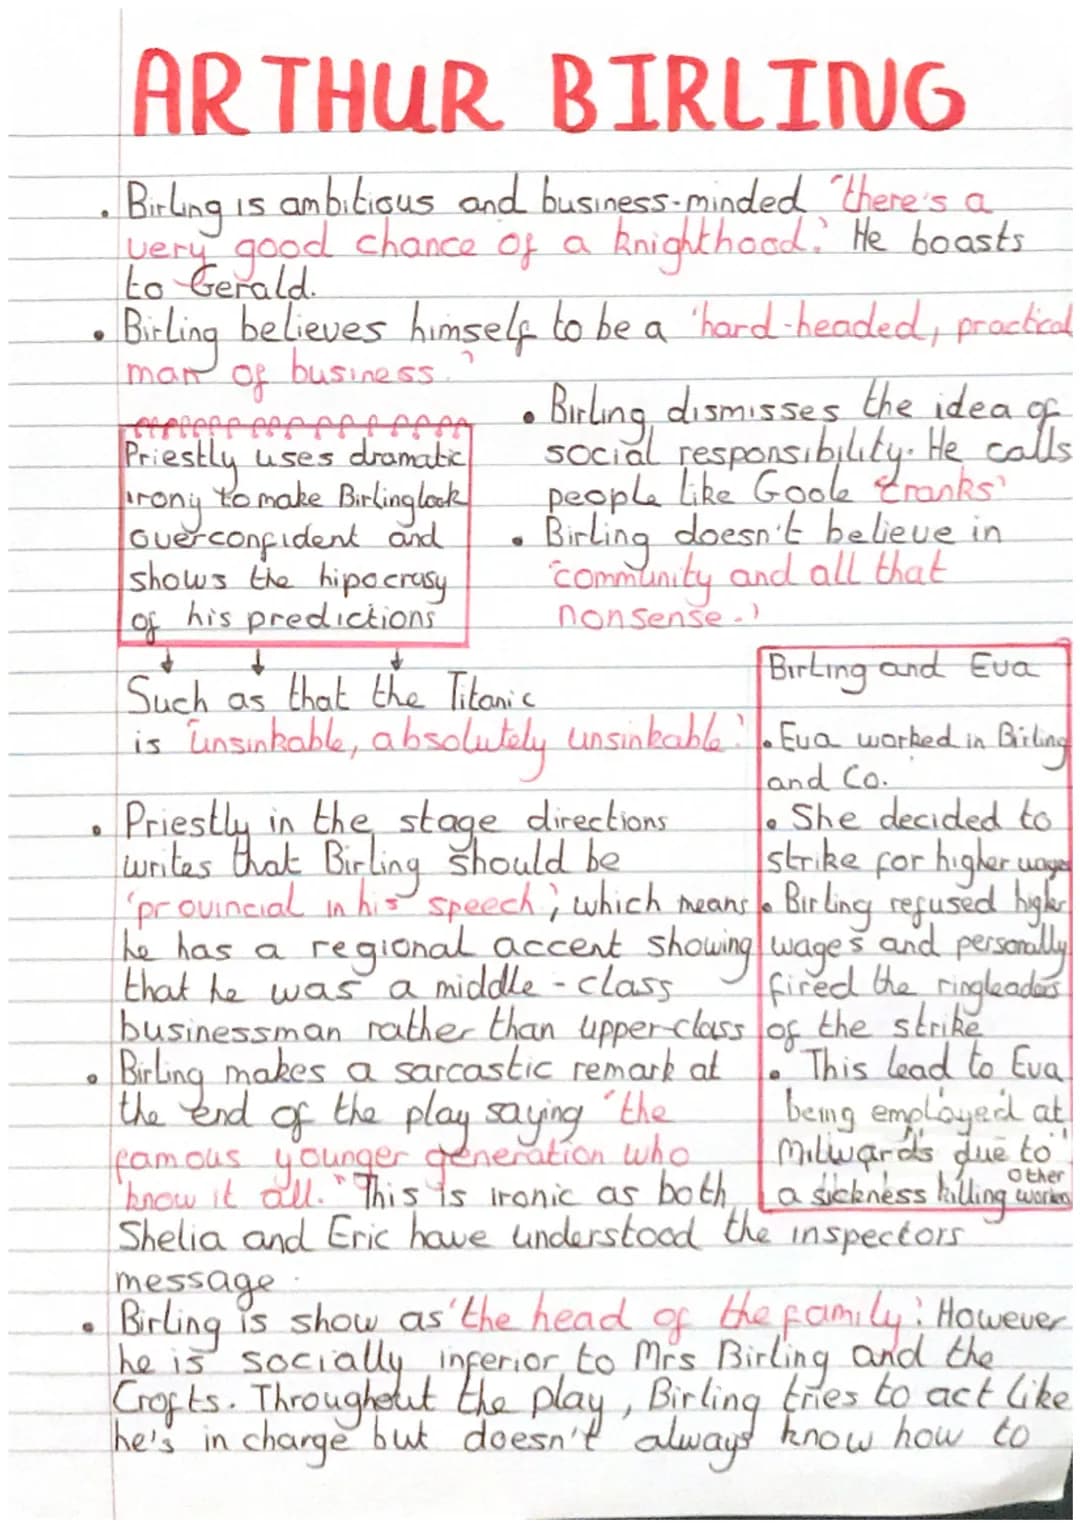 ARTHUR BIRLING
• Birling is ambitious and business-minded "there's a
very good chance of a knighthood.' He boasts
to Gerald.
• Birling believes himself to be a 'hard-headed, practical
man of business.'
Priestly uses dramatic
irony to make Birling look
overconfident and
shows the hipocrasy
of his predictions
• Birling dismisses the idea of
social responsibility. He calls
people like Goole 'cranks'
• Birling doesn't believe in
'community and all that
nonsense.'
Such as that the Titanic
is 'unsinkable, absolutely unsinkable.'
Birling and Eva
• Eva worked in Birling
and Co.
• She decided to
strike for higher wages
• Birling refused higher
wages and personally
fired the ringleaders
of the strike
• This lead to Eva
being employed at
Milwards due to
a sickness killing other workers
• Priestly in the stage directions
writes that Birling should be
'provincial in his speech', which means
he has a regional accent showing
that he was a middle-class
businessman rather than upper-class
• Birling makes a sarcastic remark at
the end of the play saying "the
famous younger generation who
know it all." This is ironic as both
Shelia and Eric have understood the inspectors
message.
• Birling is show as 'the head of the family'. However
he is socially inferior to Mrs Birling and the
Crofts. Throughout the play, Birling tries to act like
he's in charge but doesn't always know how to